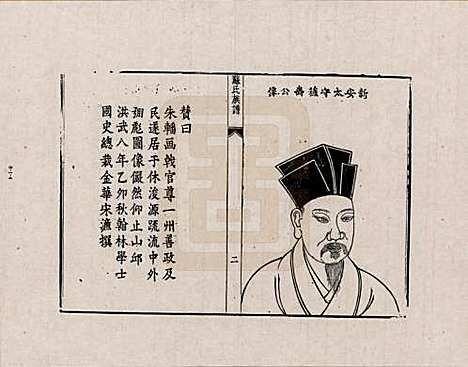 新安太守獹公像
蘇氏族譜
二
贊曰
朱轓画戟官尊一州善政及
民遂居于休浚源疏流中外
彪圖像儼然仰止山邱
洪武八年乙卯秋翰林學士
國史總裁金華宋濂撰